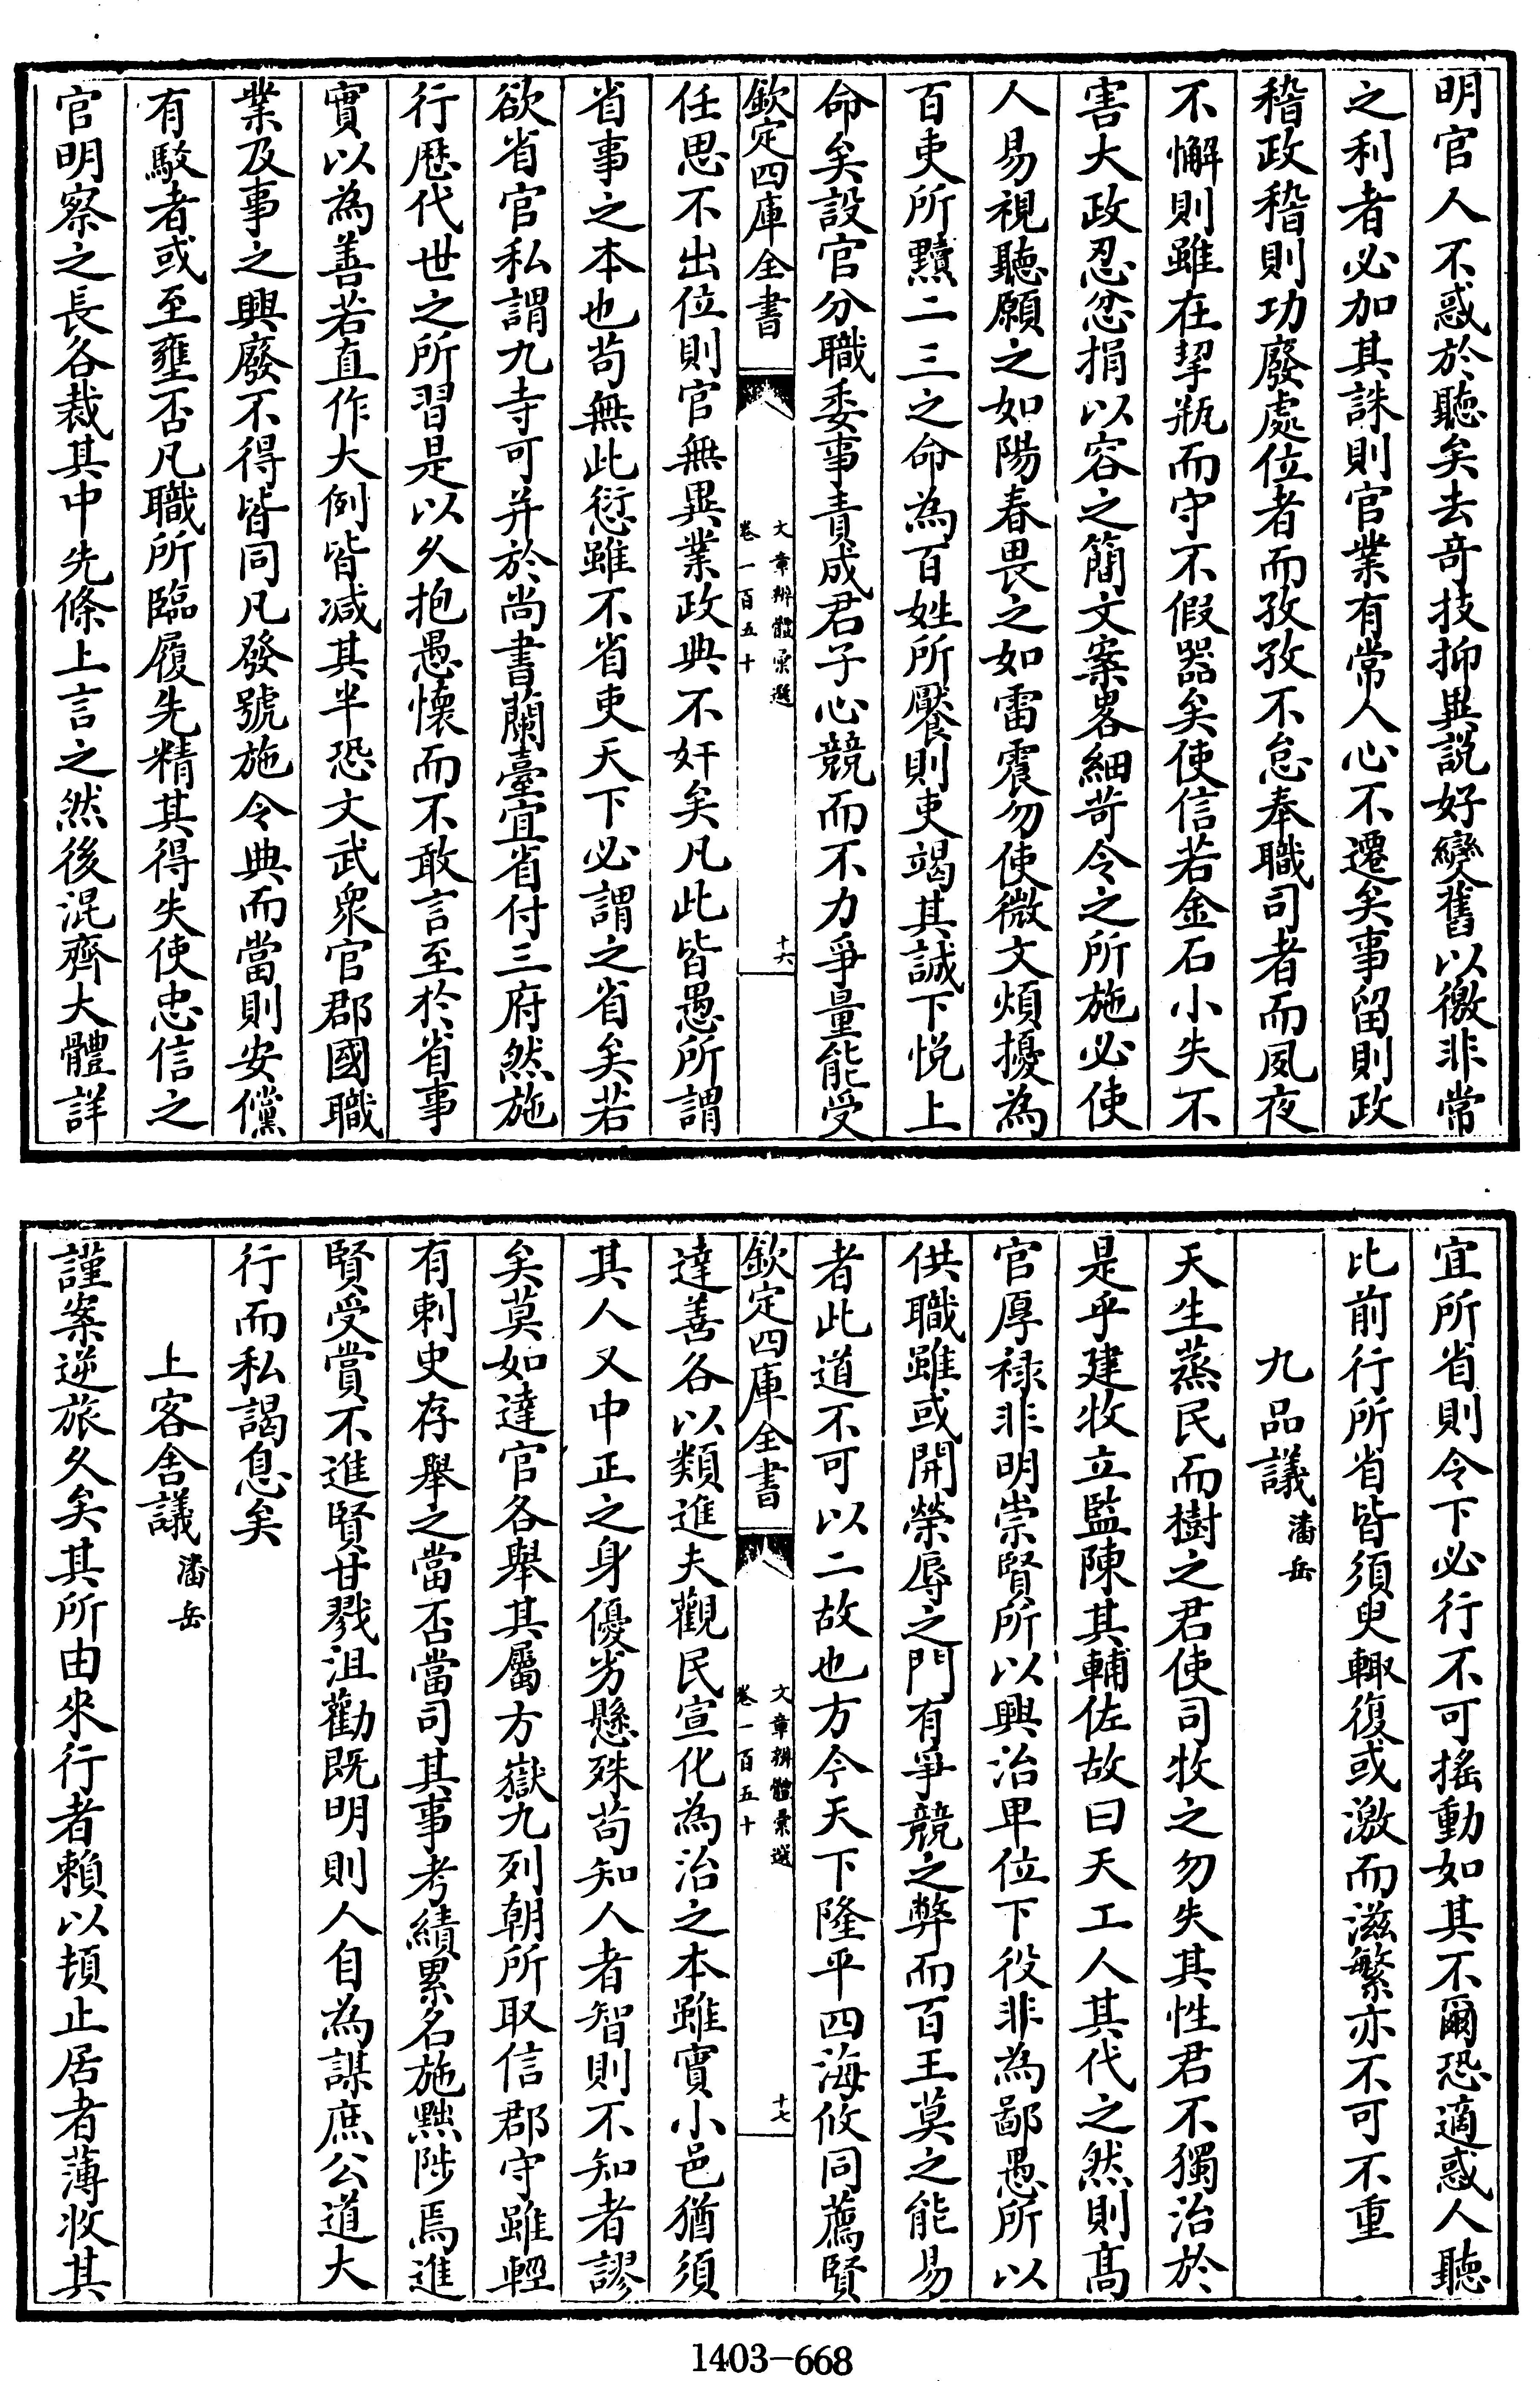 明官人不惑於聽矣去竒技抑異説好變舊以徼非常
之利者必加其誅則官業有常人心不遷矣事留則政
稽政稽則功廢處位者而孜孜不怠奉職司者而夙夜
不懈則雖在挈瓶而守不假器矣使信若金石小失不
害大政忍忿捐以容之簡文案畧細苛令之所施必使
人易視聽願之如陽春畏之如雷震勿使微文煩擾為
百吏所黷二三之命為百姓所饜則吏竭其誠下悦上
命矣設官分職委事責成君子心競而不力爭量能受
欽定四庫全書
文章辨體彙選
卷一百五十
十六
任思不出位則官無異業政典不奸矣凡此皆愚所謂
省事之本也茍無此愆雖不省吏天下必謂之省矣若
欲省官私謂九寺可并於尚書蘭臺宜省付三府然施
行歴代世之所習是以久抱愚懷而不敢言至於省事
實以為善若直作大例皆减其半恐文武衆官郡國職
業及事之興廢不得皆同凡發號施令典而當則安儻
有駮者或至壅否凡職所臨履先精其得失使忠信之
官明察之長各裁其中先條上言之然後混齊大體詳
宜所省則令下必行不可搖動如其不爾恐適惑人聽
比前行所省皆須臾輙復或激而滋繁亦不可不重
九品議潘岳
天生蒸民而樹之君使司牧之勿失其性君不獨治於
是乎建牧立監陳其輔佐故曰天工人其代之然則髙
官厚祿非明崇賢所以興治卑位下役非為鄙愚所以
供職雖或開榮辱之門有爭競之弊而百王莫之能易
者此道不可以二故也方今天下隆平四海攸同薦賢
欽定四庫全書
文章辨體彙選
卷一百五十
十七
達善各以類進夫觀民宣化為治之本雖實小邑猶須
其人又中正之身優劣懸殊茍知人者智則不知者謬
矣莫如達官各舉其屬方嶽九列朝所取信郡守雖輕
有刺史存舉之當否當司其事考績累名施黜陟焉進
賢受賞不進賢甘戮沮勸既明則人自為謀庶公道大
行而私謁息矣
上客舍議潘岳
謹案逆旅久矣其所由來行者賴以頓止居者薄收其
1403-668